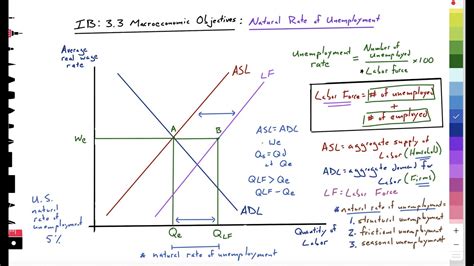 IB: 3.3 Macroeconomic Objectives: Natural Rate of Unemployment
Average
real wage
rate
ASL
LF
A
B
We
ADL
Qe
QLF
Quantity of
Labor
* natural rate of unemployment
U.S.
natural
rate of
unemployment
5%
ASL = ADL
∴ We
Qs = Qd
at Qe
QLF > Qe
QLF - Qe
Unemployment rate = Number of unemployed / * Labor force × 100
Labor Force = # of unemployed
+
# of employed
ASL = aggregate supply of
Labor (Household)
ADL = aggregate demand for
Labor (Firms)
LF: Labor Force
* natural rate of unemployment
1. structural unemployment
2. frictional unemployment
3. seasonal unemployment